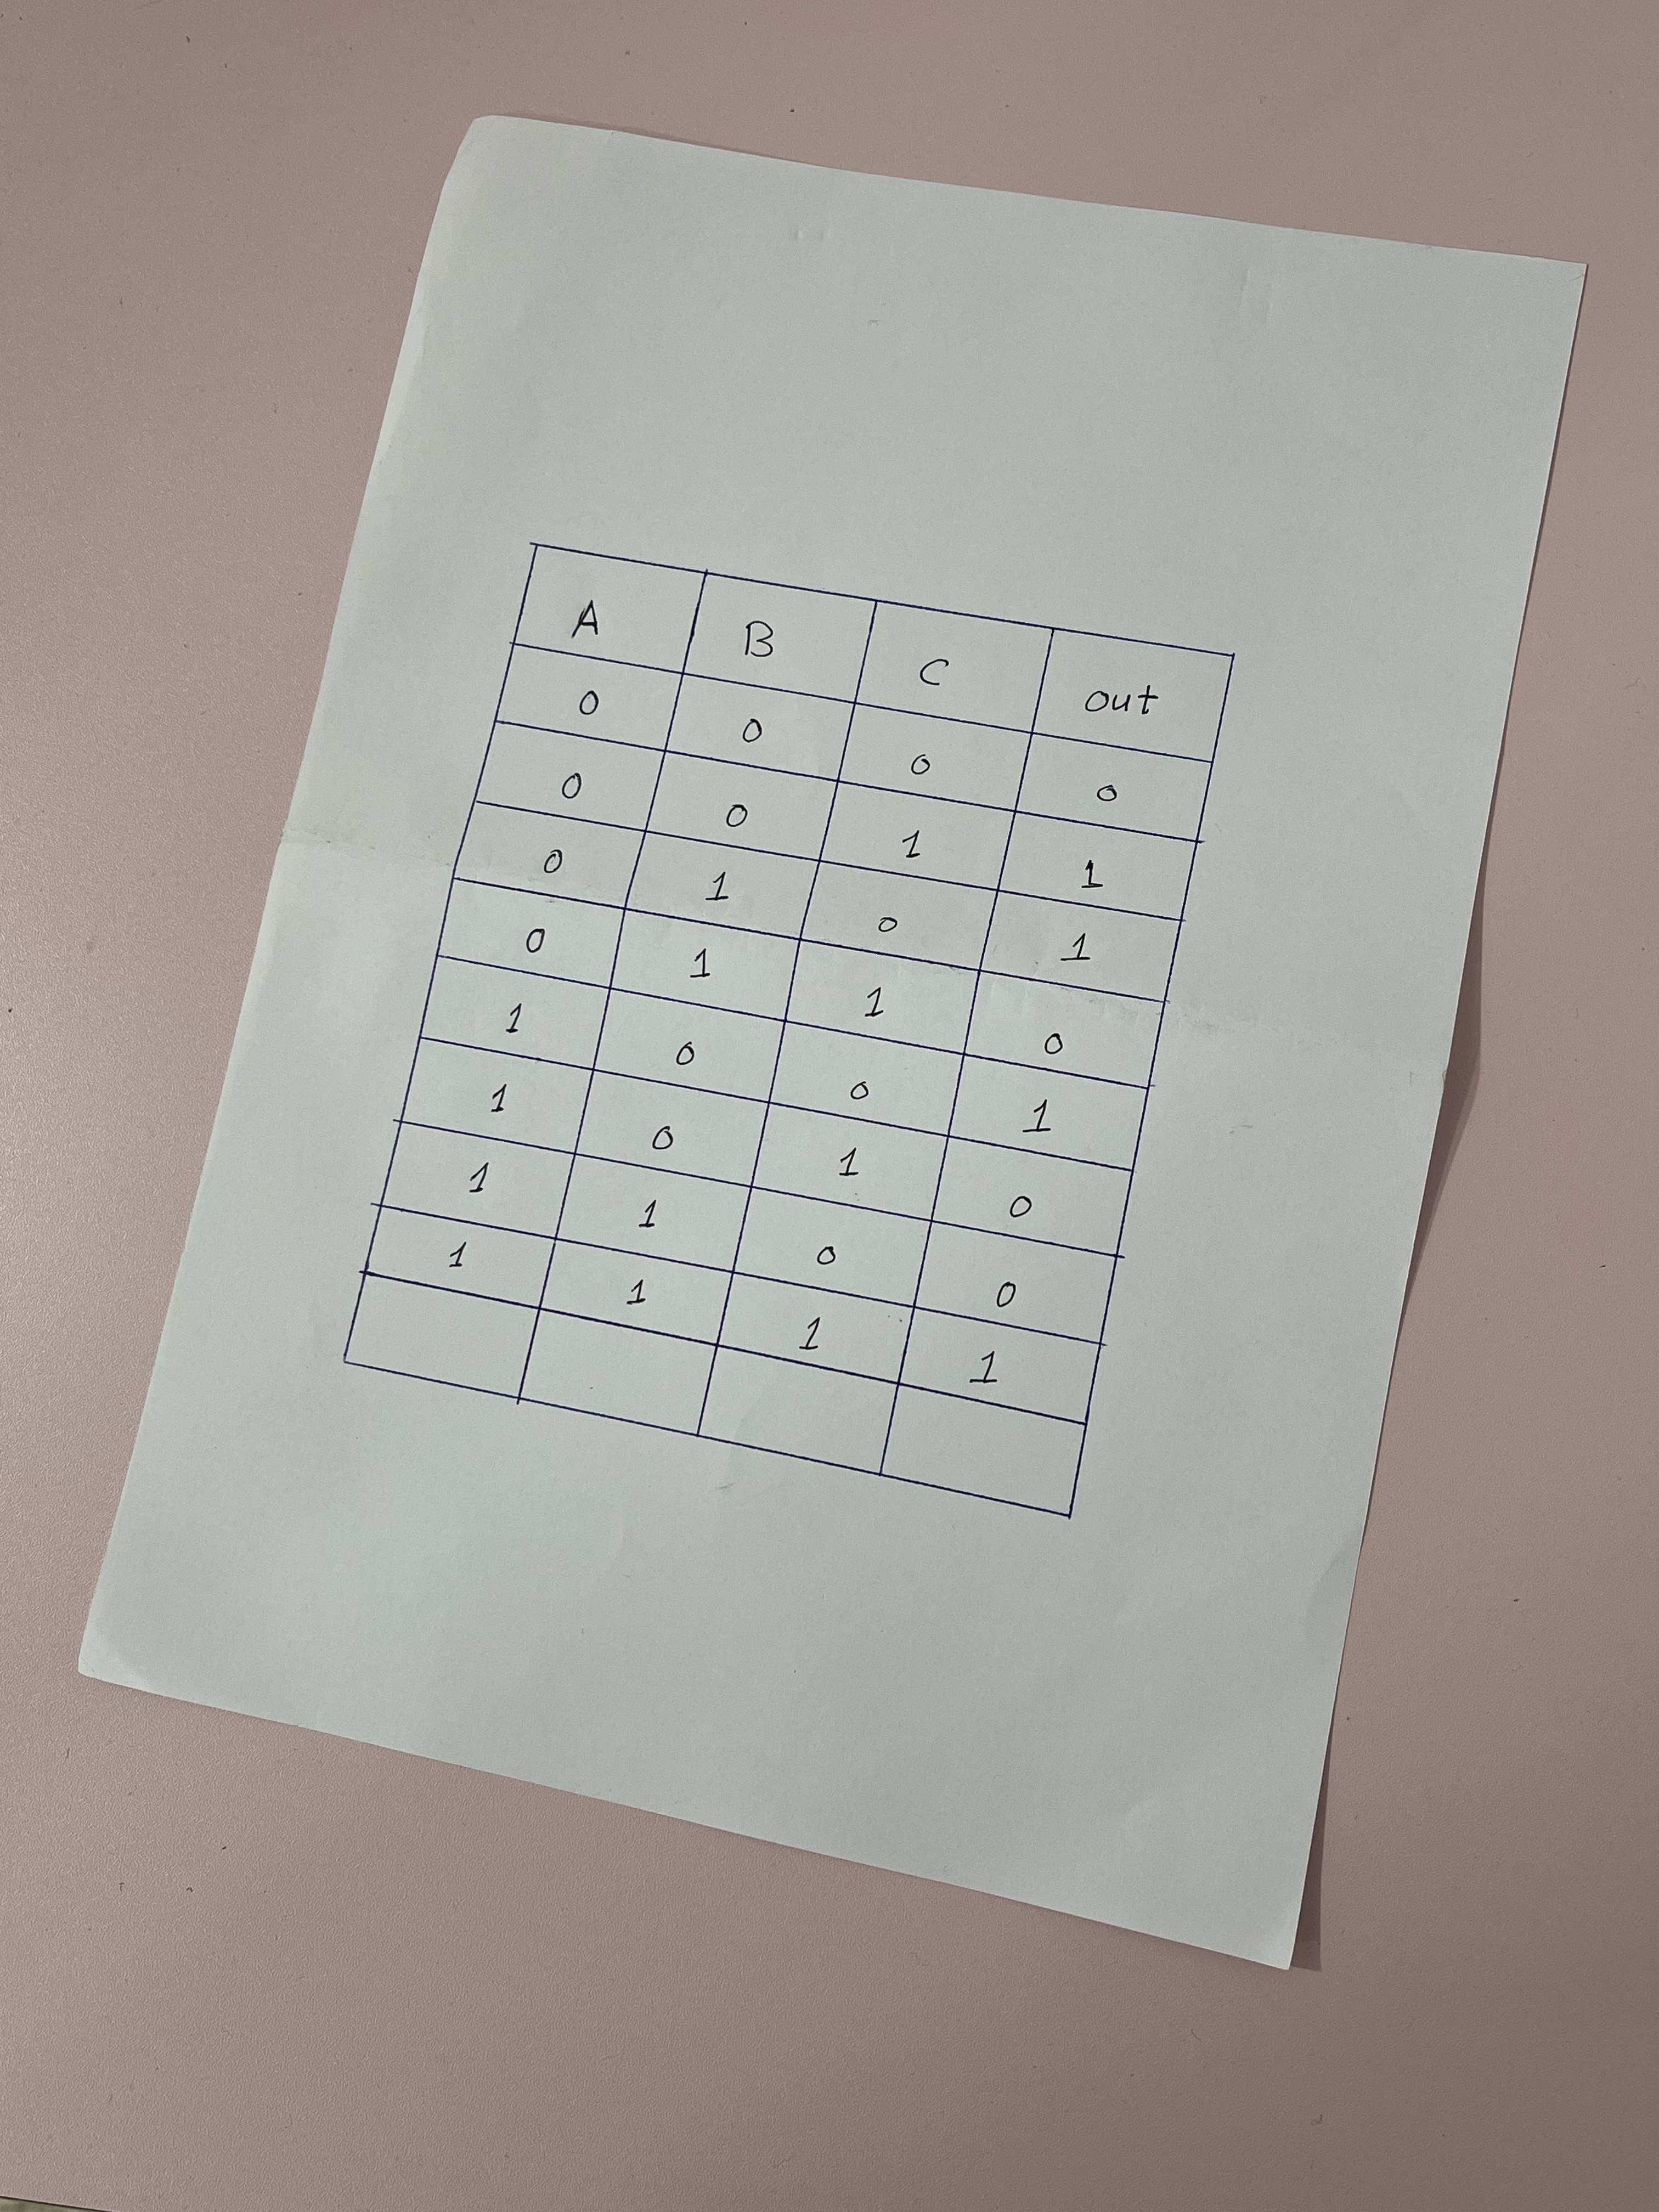 A B C out
0 0 0 0
0 0 1 1
0 1 0 1
0 1 1 0
1 0 0 1
1 0 1 0
1 1 0 0
1 1 1 1